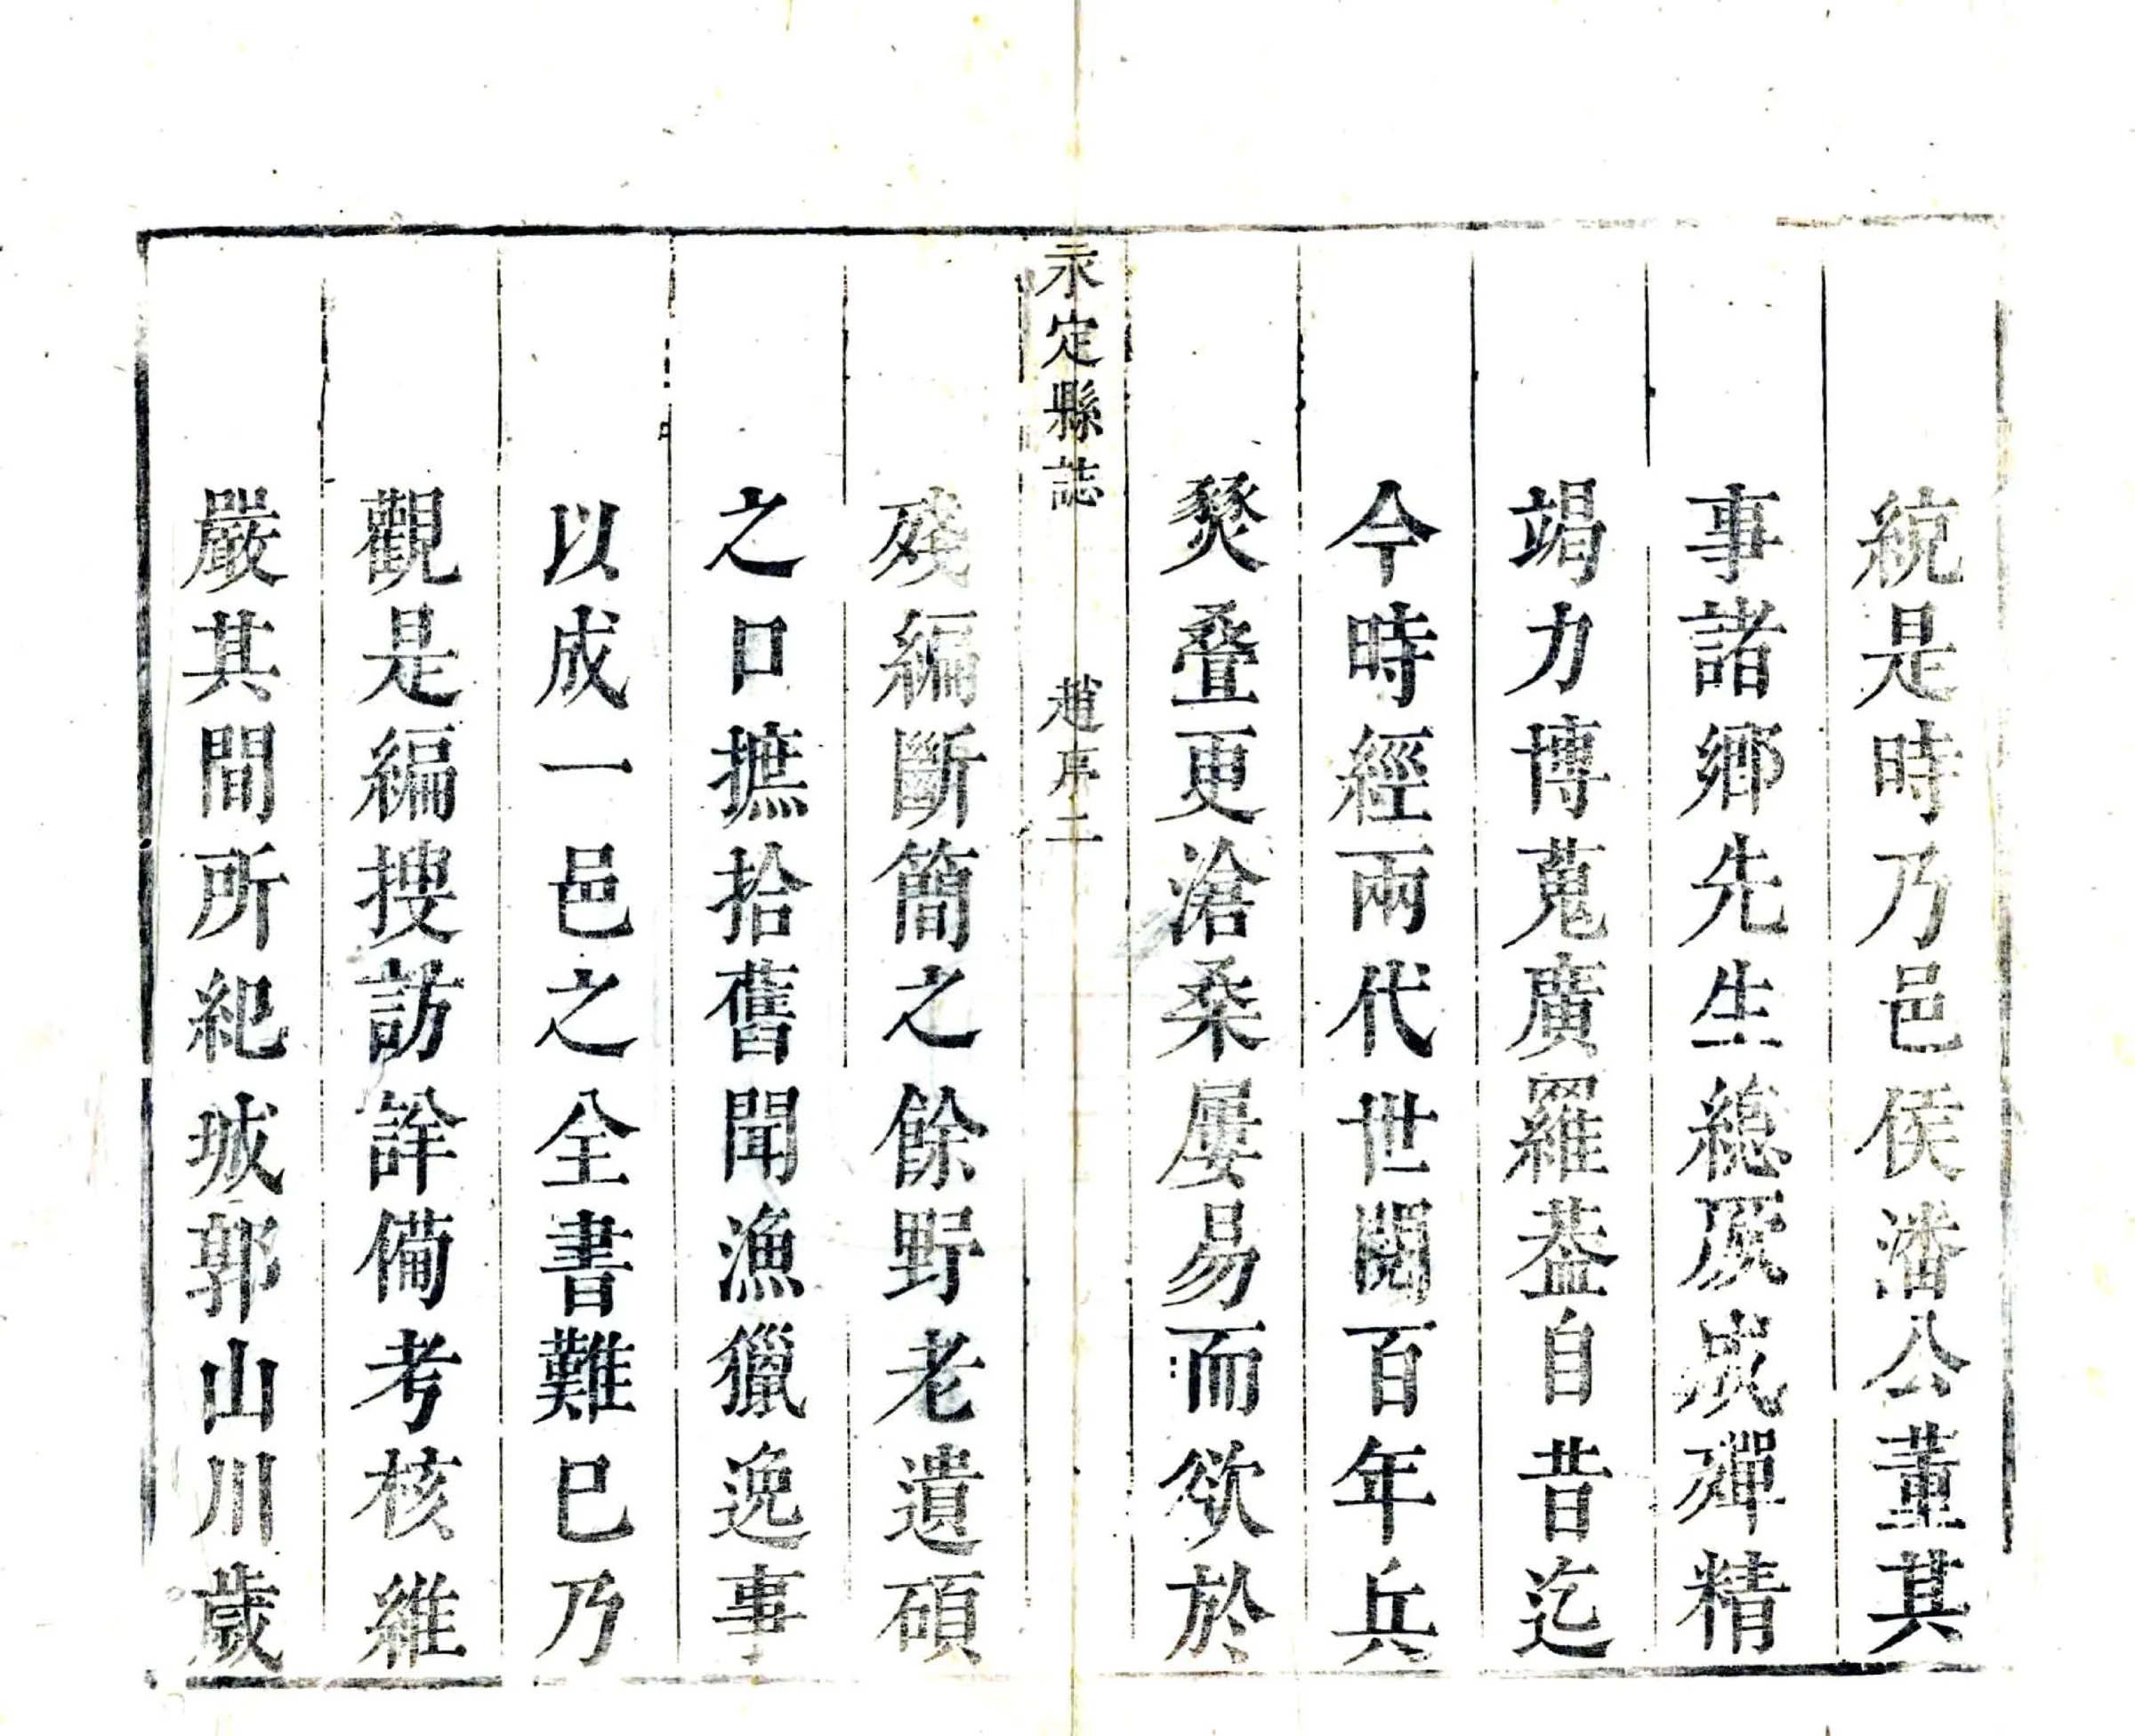 統是時乃邑侯潘公董其
事諸鄉先生總厥成殫精
竭力博蒐廣羅葢自昔迄
今時經兩代世閱百年兵
燹叠更滄桑屢易而欲於
永定縣誌 趙序 二
殘編斷簡之餘野老遺碩
之口摭拾舊聞漁獵逸事
以成一邑之全書難巳乃
觀是編搜訪詳備考核維
嚴其間所紀城郭山川歲